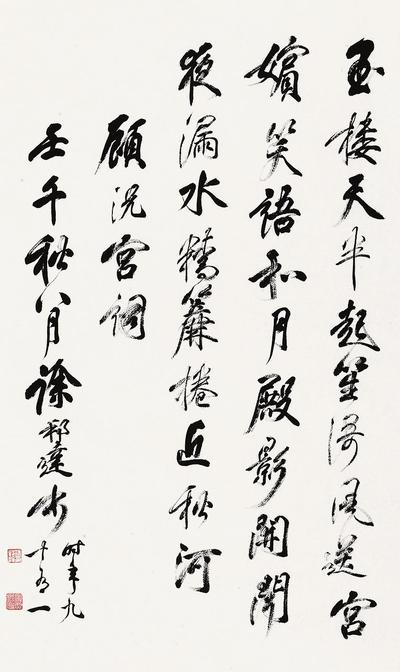 玉樓天半起笙歌風送宮
嬪笑語和月殿影開聞
夜漏水精簾捲近秋河
顧況宮詞
壬午秋八月徐邦達書
時年九
十有一